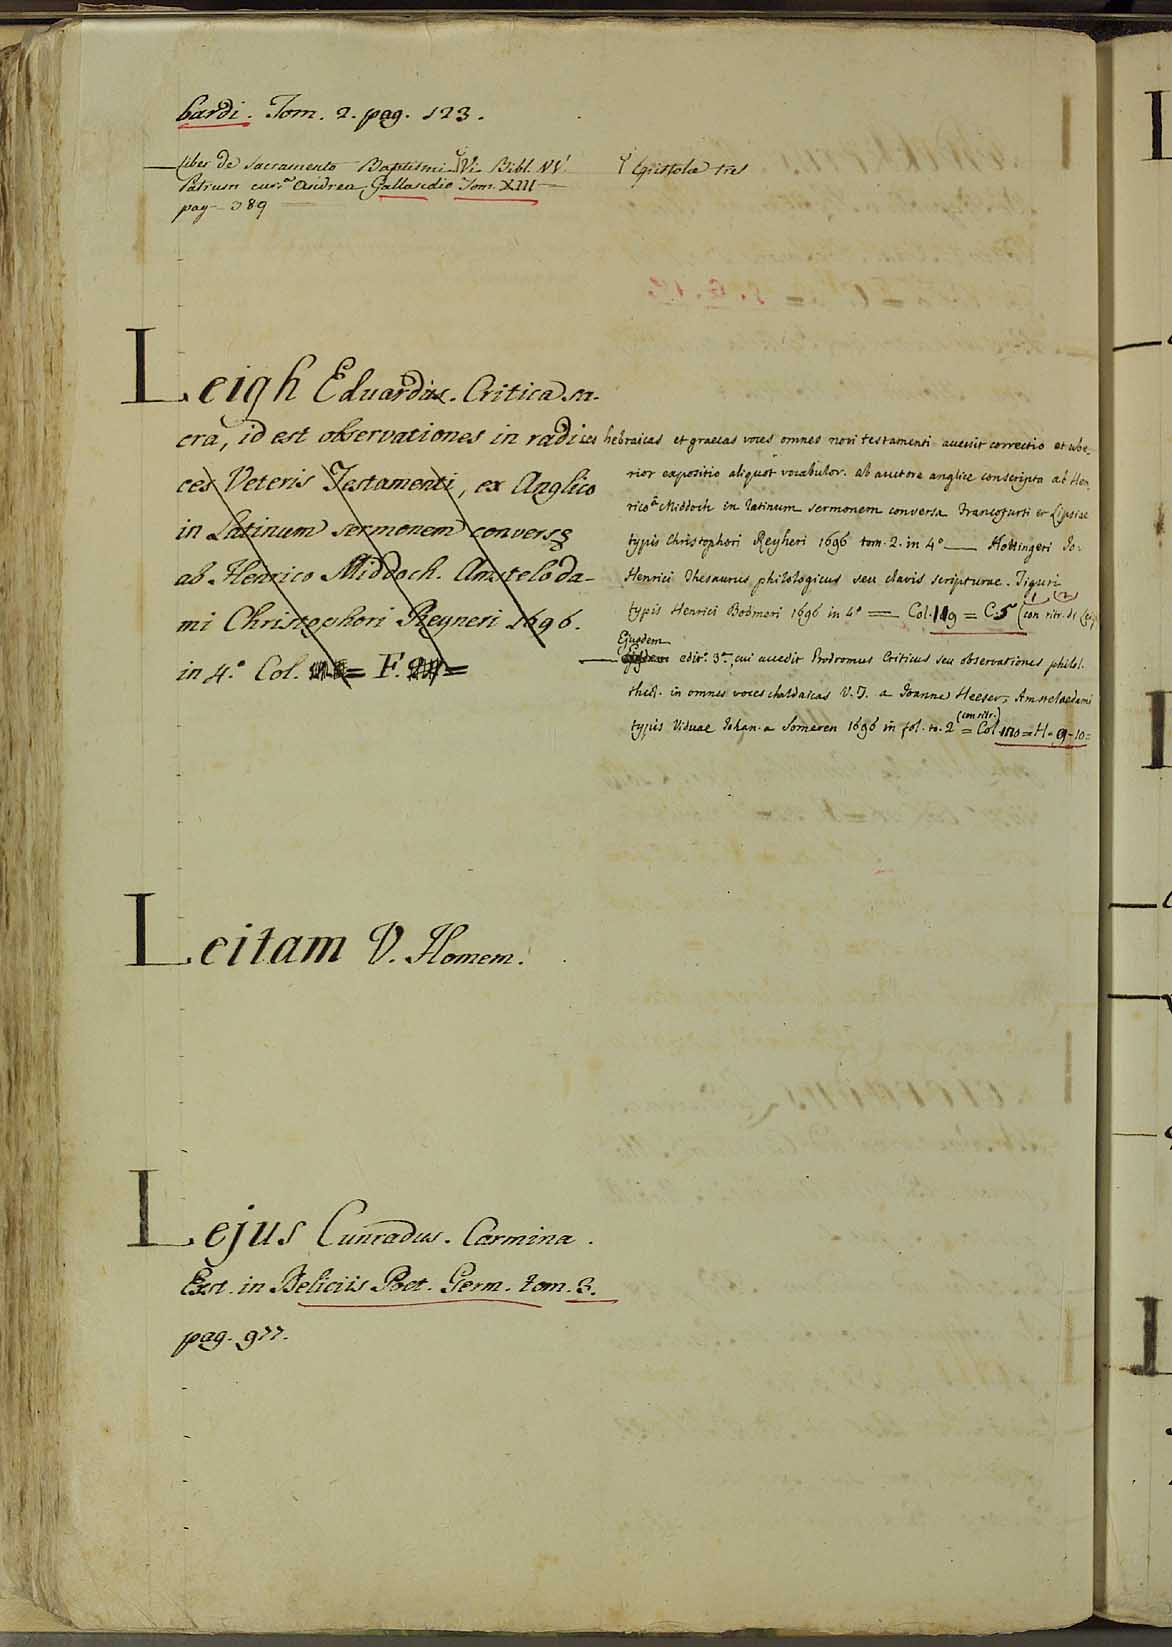 bardi. Tom. 2. pag. 123.
— Liber de Sacramento Baptismi Vi Bibl. VV.
Patrum cur.ª Andrea Gallandio Tom. XIII —
pag. 389
Epistolæ tres
Leigh Eduardus. Critica sa-
cra, id est observationes in radices hebraicas et graecas voces omnes novi testamenti accessit correctio et ube-
ces Veteris Testamenti, ex Anglico
in Latinum sermonem convers
ab Henrico Middoch. Amsteloda-
mi Christophori Reyneri 1696.
in 4.º Col. = F. =
rior expositio aliquot vocabulor. ab auctore anglice conscripta ab Hen-
rico â Middoch in latinum sermonem conversa Francofurti et Lipsiae
typis Christophori Reyheri 1696 tom. 2. in 4º — Hottingeri Jo.
Henrici Thesaurus philologicus seu clavis scripturae. Tiguri
typis Henrici Bodmeri 1696 in 4º = Col. 119 = C. 5 (con ritr. di
Ejusdem
— edit.º 3.ª, cui accedit Prodromus Criticus seu observationes philol.
theol. in omnes voces chaldaicas V. T. a Joanne Heeser, Amstelaedami
typis Viduae Johan. a Someren 1696 in fol. to. 2 (con ritr.) = Col. = H. 9-10=
Leitam V. Homem.
Lejus Cunradus. Carmina.
Exst. in Deliciis Poet. Germ. tom. 3.
pag. 977.